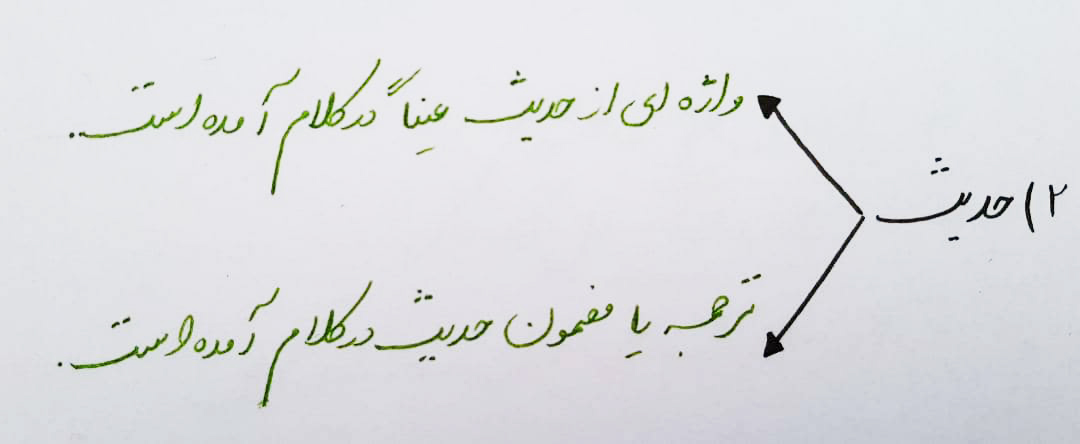 ۲) حدیث
واژه ای از حدیث عیناً در کلام آمده است.
ترجمه یا مضمون حدیث در کلام آمده است.